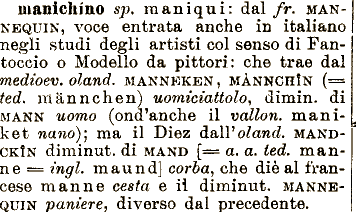 manichino sp. maniqui: dal fr. MAN-
NEQUIN, voce entrata anche in italiano
negli studi degli artisti col senso di Fan-
toccio o Modello da pittori: che trae dal
medioev. oland. MANNEKEN, MÀNNCHÎN (=
ted. männchen) uomiciattolo, dimin. di
MANN uomo (ond'anche il vallon. mani-
ket nano); ma il Diez dall'oland. MAND-
CKÎN diminut. di MAND [= a. a. ted. man-
ne = ingl. maund] corba, che diè al fran-
cese manne cesta e il diminut. MANNE-
QUIN paniere, diverso dal precedente.